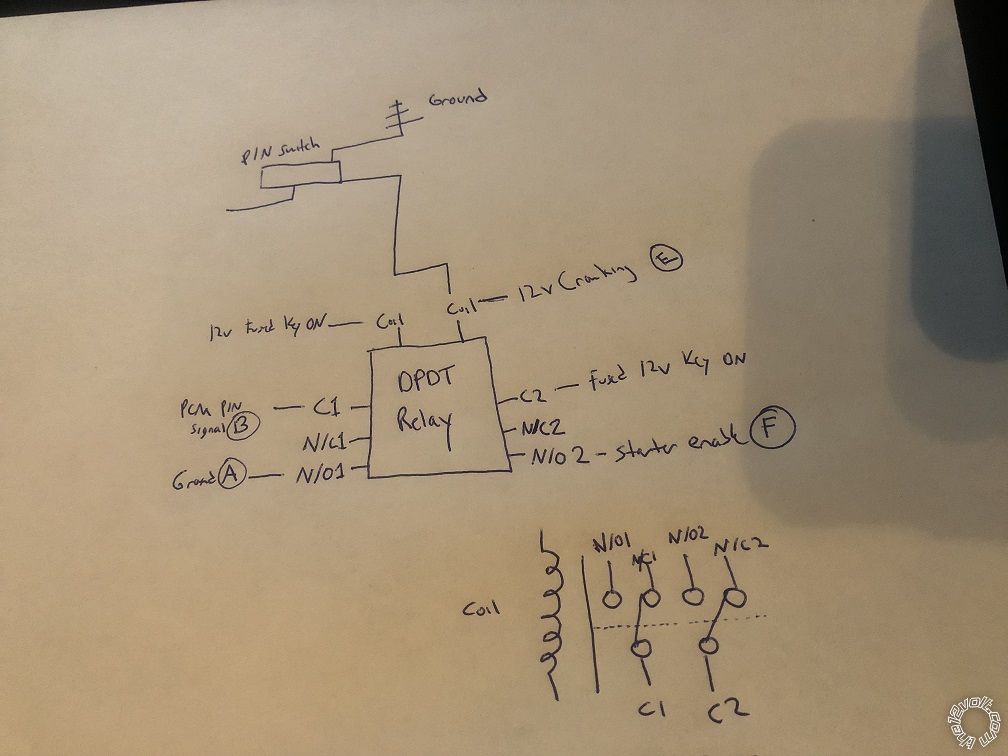 Ground
PIN Switch
12v Cranking E
12v Fused Key ON
Coil
Coil
DPDT
Relay
PCM PIN
Signal B
C1
N/C1
Ground A
N/O1
C2 – Fused 12v Key ON
N/C2
N/O2 – Starter enable F
Coil
N/O1
N/C1
N/O2
N/C2
C1
C2
the12volt.com